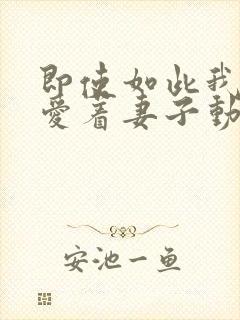 即使如此我
爱着妻子動
安池一鱼